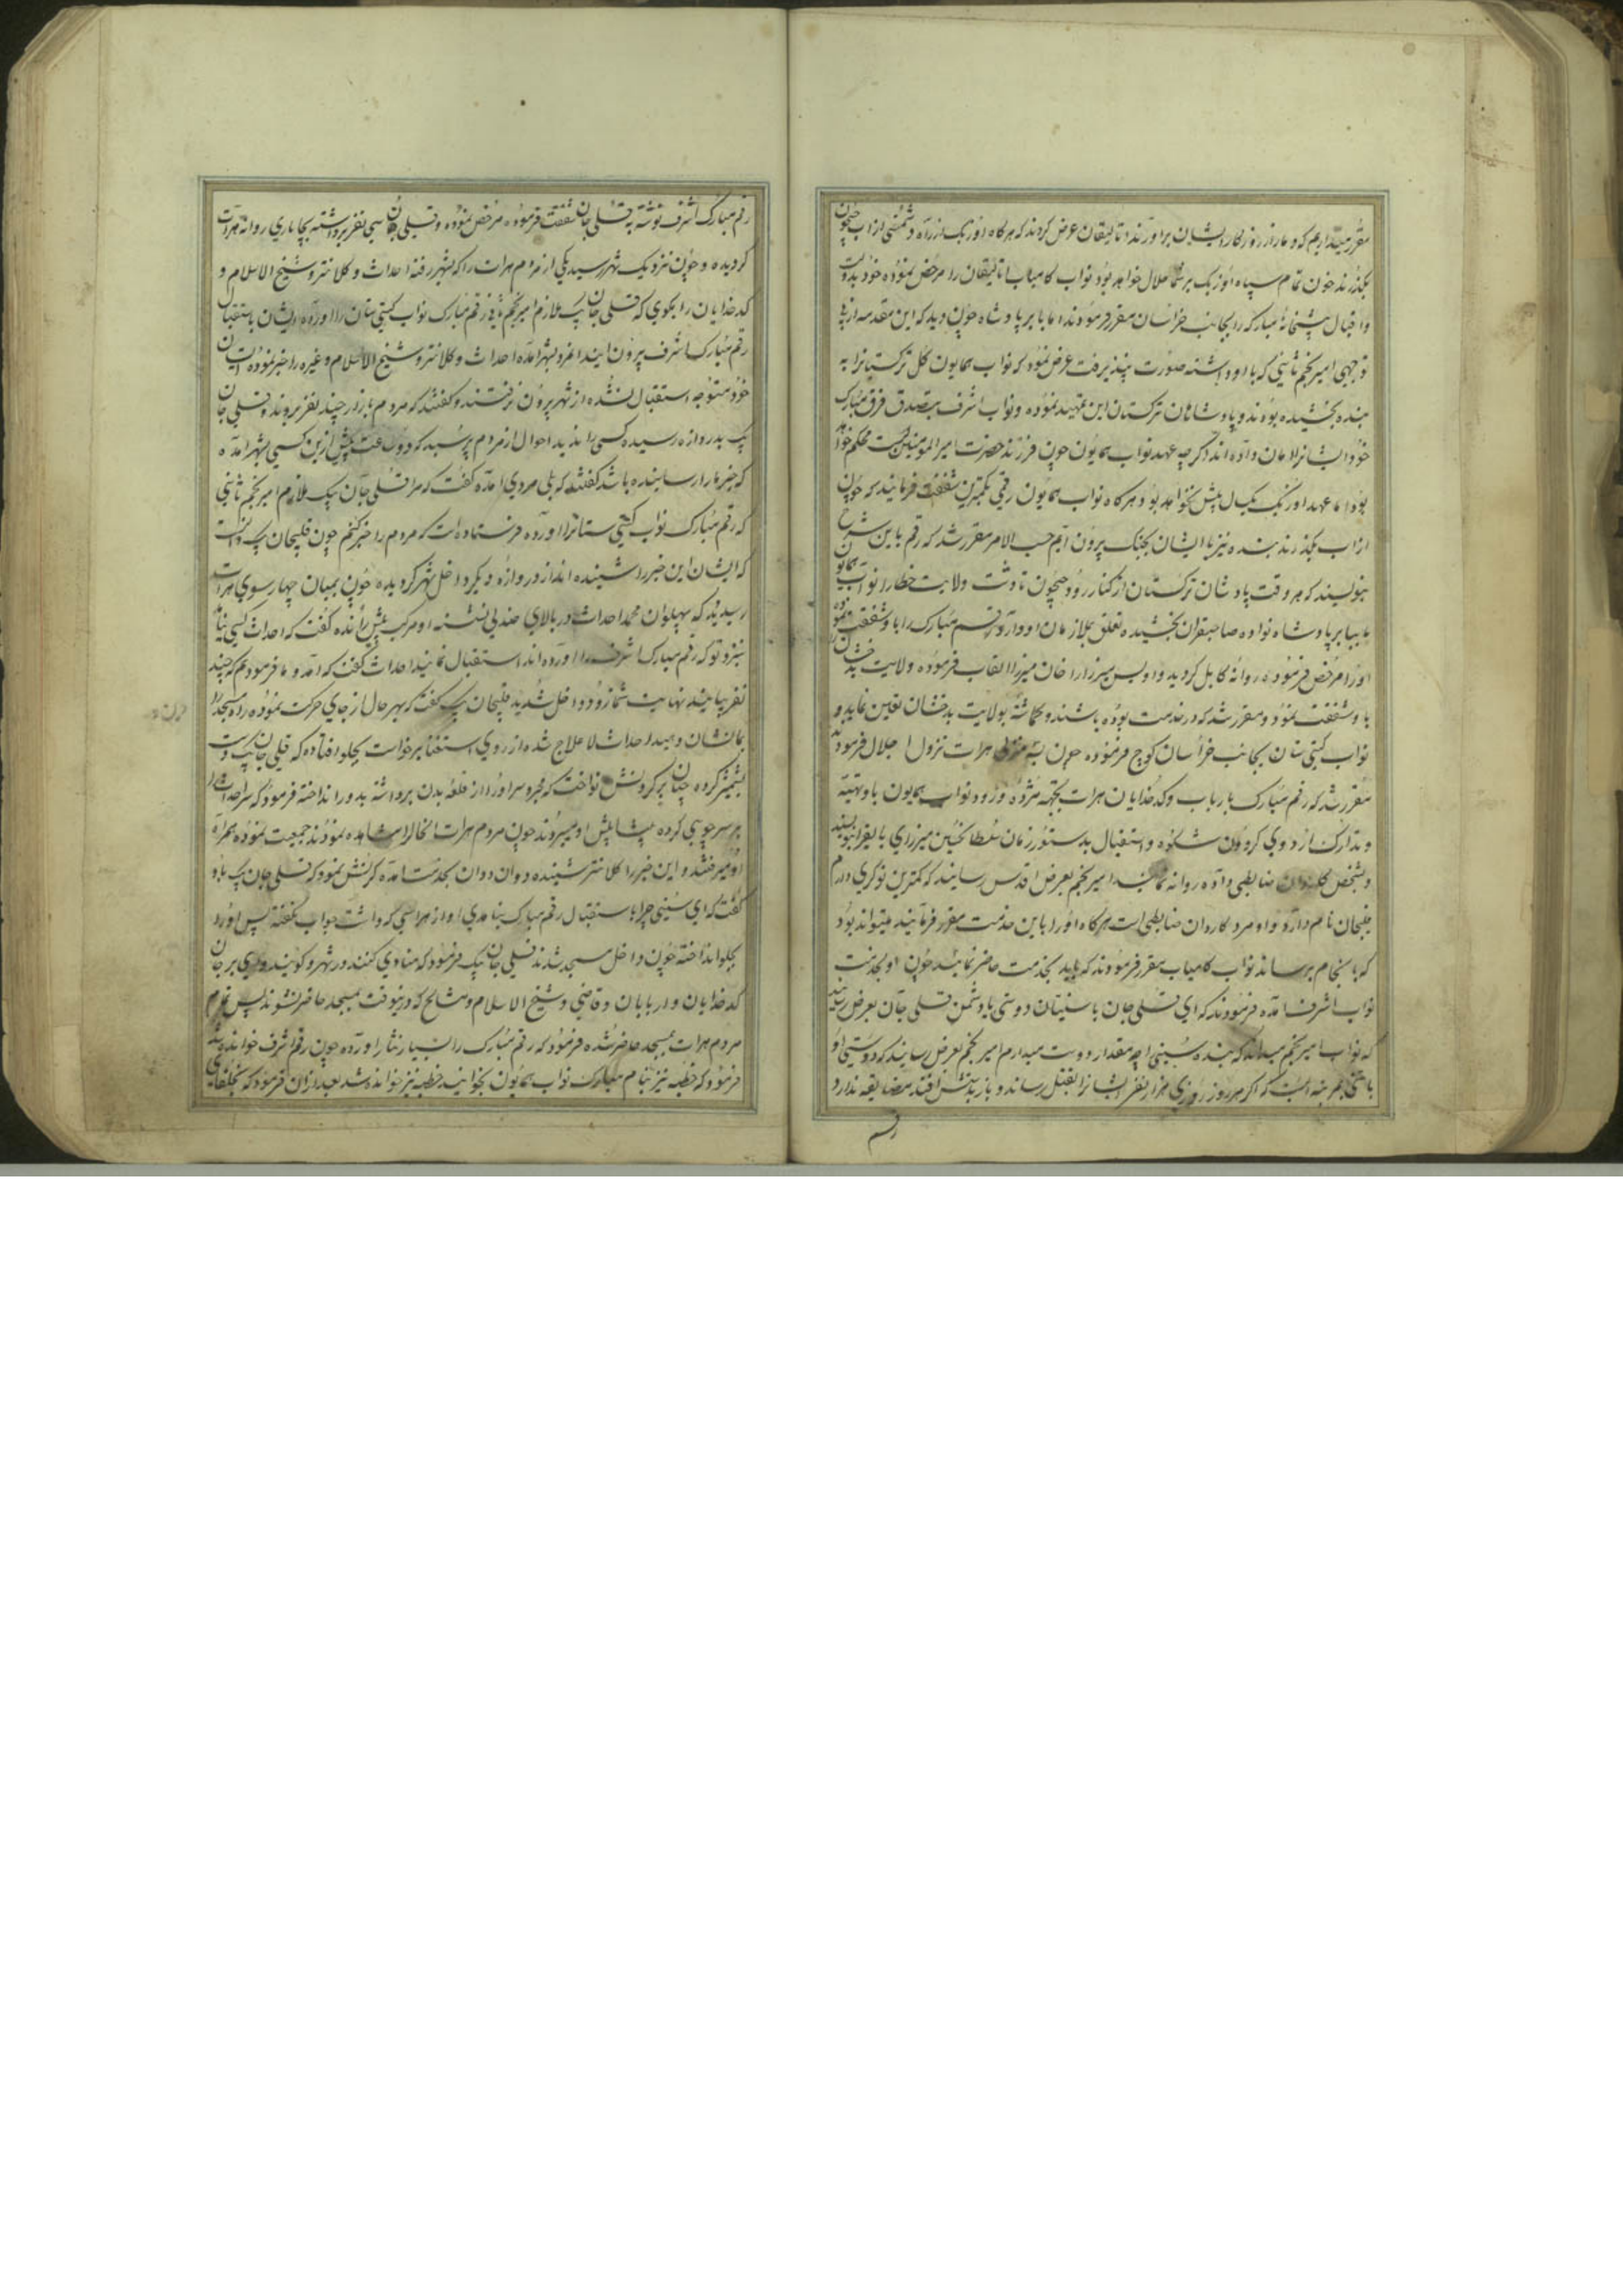 مقرر میداریم که دمار از روزگار ایشان برآورند اتالیقان عرض کردند که هرگاه اوزبک از راه دشمنی از آب جیحون
بگذرند خون تمام سپاه اوزبک بر شما حلال خواهد بود نواب کامیاب اتالیقان را مرخص نموده خود بدولت
و اقبال پیشخانهٔ مبارکه را بجانب خراسان مقرر فرمودند اما بابر پادشاه چون دید که این مقدمه از
توجهی امیر نجم ثانی که با او داشته صورت پذیرفت عرض نمود که نواب همایون کل ترکستانرا به
بنده بخشیده بودند و پادشاهان ترکستان این تمهید نموده و نواب اشرف بتصدق فرق مبارک
خود ایشانرا امان داده اند اگرچه عهد نواب همایون چون فرزند حضرت امیرالمومنین است محکم خواهد
بود اما عهد اوزبک یکسال بیش نخواهد بود و هرگاه نواب همایون رقمی بکمترین شفقت فرمایند که چون
از آب بگذرند بنده نیز با ایشان بجنگ بیرون آیم حسب الامر مقرر شد که رقم باین شرح
بنویسند که هر وقت پادشاهان ترکستان از کنار رود جیحون تا دشت ولایت خطا را نواب همایون
ما ببابر پادشاه نواده صاحبقران بخشیده تعلق بملازمان او دارد و رقم مبارک را باو شفقت نموده
او را مرخص فرموده روانهٔ کابل گردید و اویس میرزا را خان میرزا القاب فرموده ولایت بدخشان را
باو شفقت نمود و مقرر شد که در خدمت بوده باشند و گماشته بولایت بدخشان تعیین نماید و
نواب گیتی ستان بجانب خراسان کوچ فرموده چون به منزل هرات نزول اجلال فرمودند
مقرر شد که رقم مبارک بارباب و کدخدایان هرات بجهة مژده ورود نواب همایون با و تهیه
و تدارک اردوی گردون شکوه و استقبال بدستور زمان سلطان حسین میرزای بایقرا بنویسند
و بشخص کاردان ضابطی داده روانه نمایند امیر نجم بعرض اقدس رسانید که کمترین نوکری دارم
قلیجان نام دارد و او مرد کاردان ضابطی است هرگاه او را باین خدمت مقرر فرمایند میتواند بود
که بانجام برساند نواب کامیاب مقرر فرمودند که باید بخدمت حاضر نمایند چون او بخدمت
نواب اشرف آمده فرمودند که ای قلی جان با سنیان دوستی یا دشمن قلی جان بعرض رسانید
که نواب امیر نجم میداند که بنده سنی را چه مقدار دوست میدارم امیر نجم بعرض رسانید که دوستی او
با سنی بمرتبه است که اگر هر روز روزی هزار نفر ایشانرا بقتل رساند و باز بدستش افتد مضایقه ندارد
رقم
رقم مبارک اشرف نوشته به قلی جان شفقت فرموده مرخص نموده و قلی جان سی نفر برداشته بچاپاری روانه هرات
گردیده و چون نزدیک شهر رسید یکی از مردم هرات را که بشهر رفته احداث و کلانتر و شیخ الاسلام و
کدخدایان را بگوی که قلی جان بیک ملازم امیر نجم ثانی رقم مبارک نواب گیتی ستان را آورده ایشان باستقبال
رقم مبارک اشرف بیرون آیند آن مرد بشهر آمده احداث و کلانتر و شیخ الاسلام و غیره را خبر نموده ایشان
خود متوجه استقبال نشده از شهر بیرون نرفتند و گفتند که مردم بازار چند نفر بروند و قلی جان
بیک بدروازه رسیده کسی را ندید احوال از مردم پرسید که دو ساعت پیش ازین کسی بشهر آمده
که خبر ما را رسانیده باشد گفتند که بلی مردی آمده گفت که مرا قلی جان بیک ملازم امیر نجم ثانی
که رقم مبارک نواب گیتی ستانرا آورده فرستاده است که مردم را خبر کنم چون قلیجان بیک دانست
که ایشان این خبر را شنیده اند از دروازه دیگر داخل شهر گردیده چون بمیان چهارسوی هرات
رسید که پهلوان محمد احداث در بالای صندلی نشسته او مرکب پیش رانده گفت که احداث کسی نیامد
بنزد تو که رقم مبارک اشرف را آورده اند استقبال نمایند احداث گفت که آمد و ما فرمودیم که چند
نفر بیایند نهایت شما زود داخل شدید قلیجان بیک گفت که بهر حال از جای حرکت نموده راه مسجد را
بما نشان دهید احداث لاعلاج شده از روی استغنا برخواست بجلو افتاده که قلی جان بیک دست
بشمشیر کرده چنان بر گردنش نواخت که مجروسر او را از قلعهٔ بدن برداشته بدور انداخته فرمود که سر احداث را
بر سر چوبی کرده پیشاپیش او میبردند چون مردم هرات آنحال را مشاهده نمودند جمعیت نموده همراه
او میرفتند و این خبر را کلانتر شنیده دوان دوان بخدمت آمده کرنش نمود که قلی جان بیک باو
گفت که ای سنی چرا باستقبال رقم مبارک نیامدی او از هراسی که داشت جواب نگفته پس او را
بجلو انداخته چون داخل مسجد شدند قلی جان بیک فرمود که منادی کنند در شهر و گویند وای بر جان
کدخدایان و اربابان و قاضی و شیخ الاسلام و مشایخ که درینوقت بمسجد حاضر نشوند پس تمام
مردم هرات بمسجد حاضر شده فرمود که رقم مبارک را بسیار نثار آورده چون رقم اشرف خوانده شد
فرمود که خطبه نیز بنام مبارک نواب همایون بخوانند خطبه نیز خوانده شد بعد از آن فرمود که بخلفای